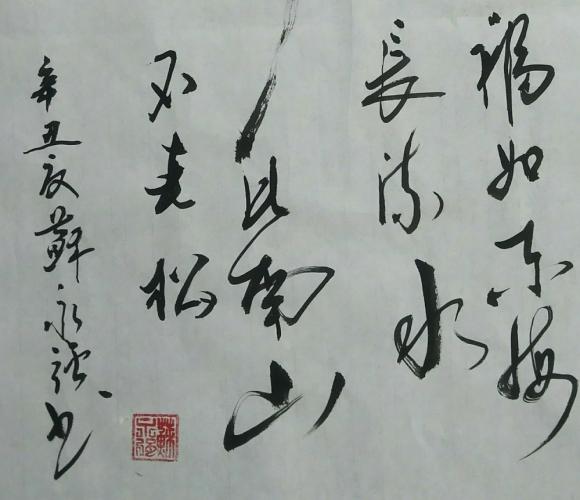 福如东海
長流水
寿比南山
不老松
辛丑夜蘇永強书